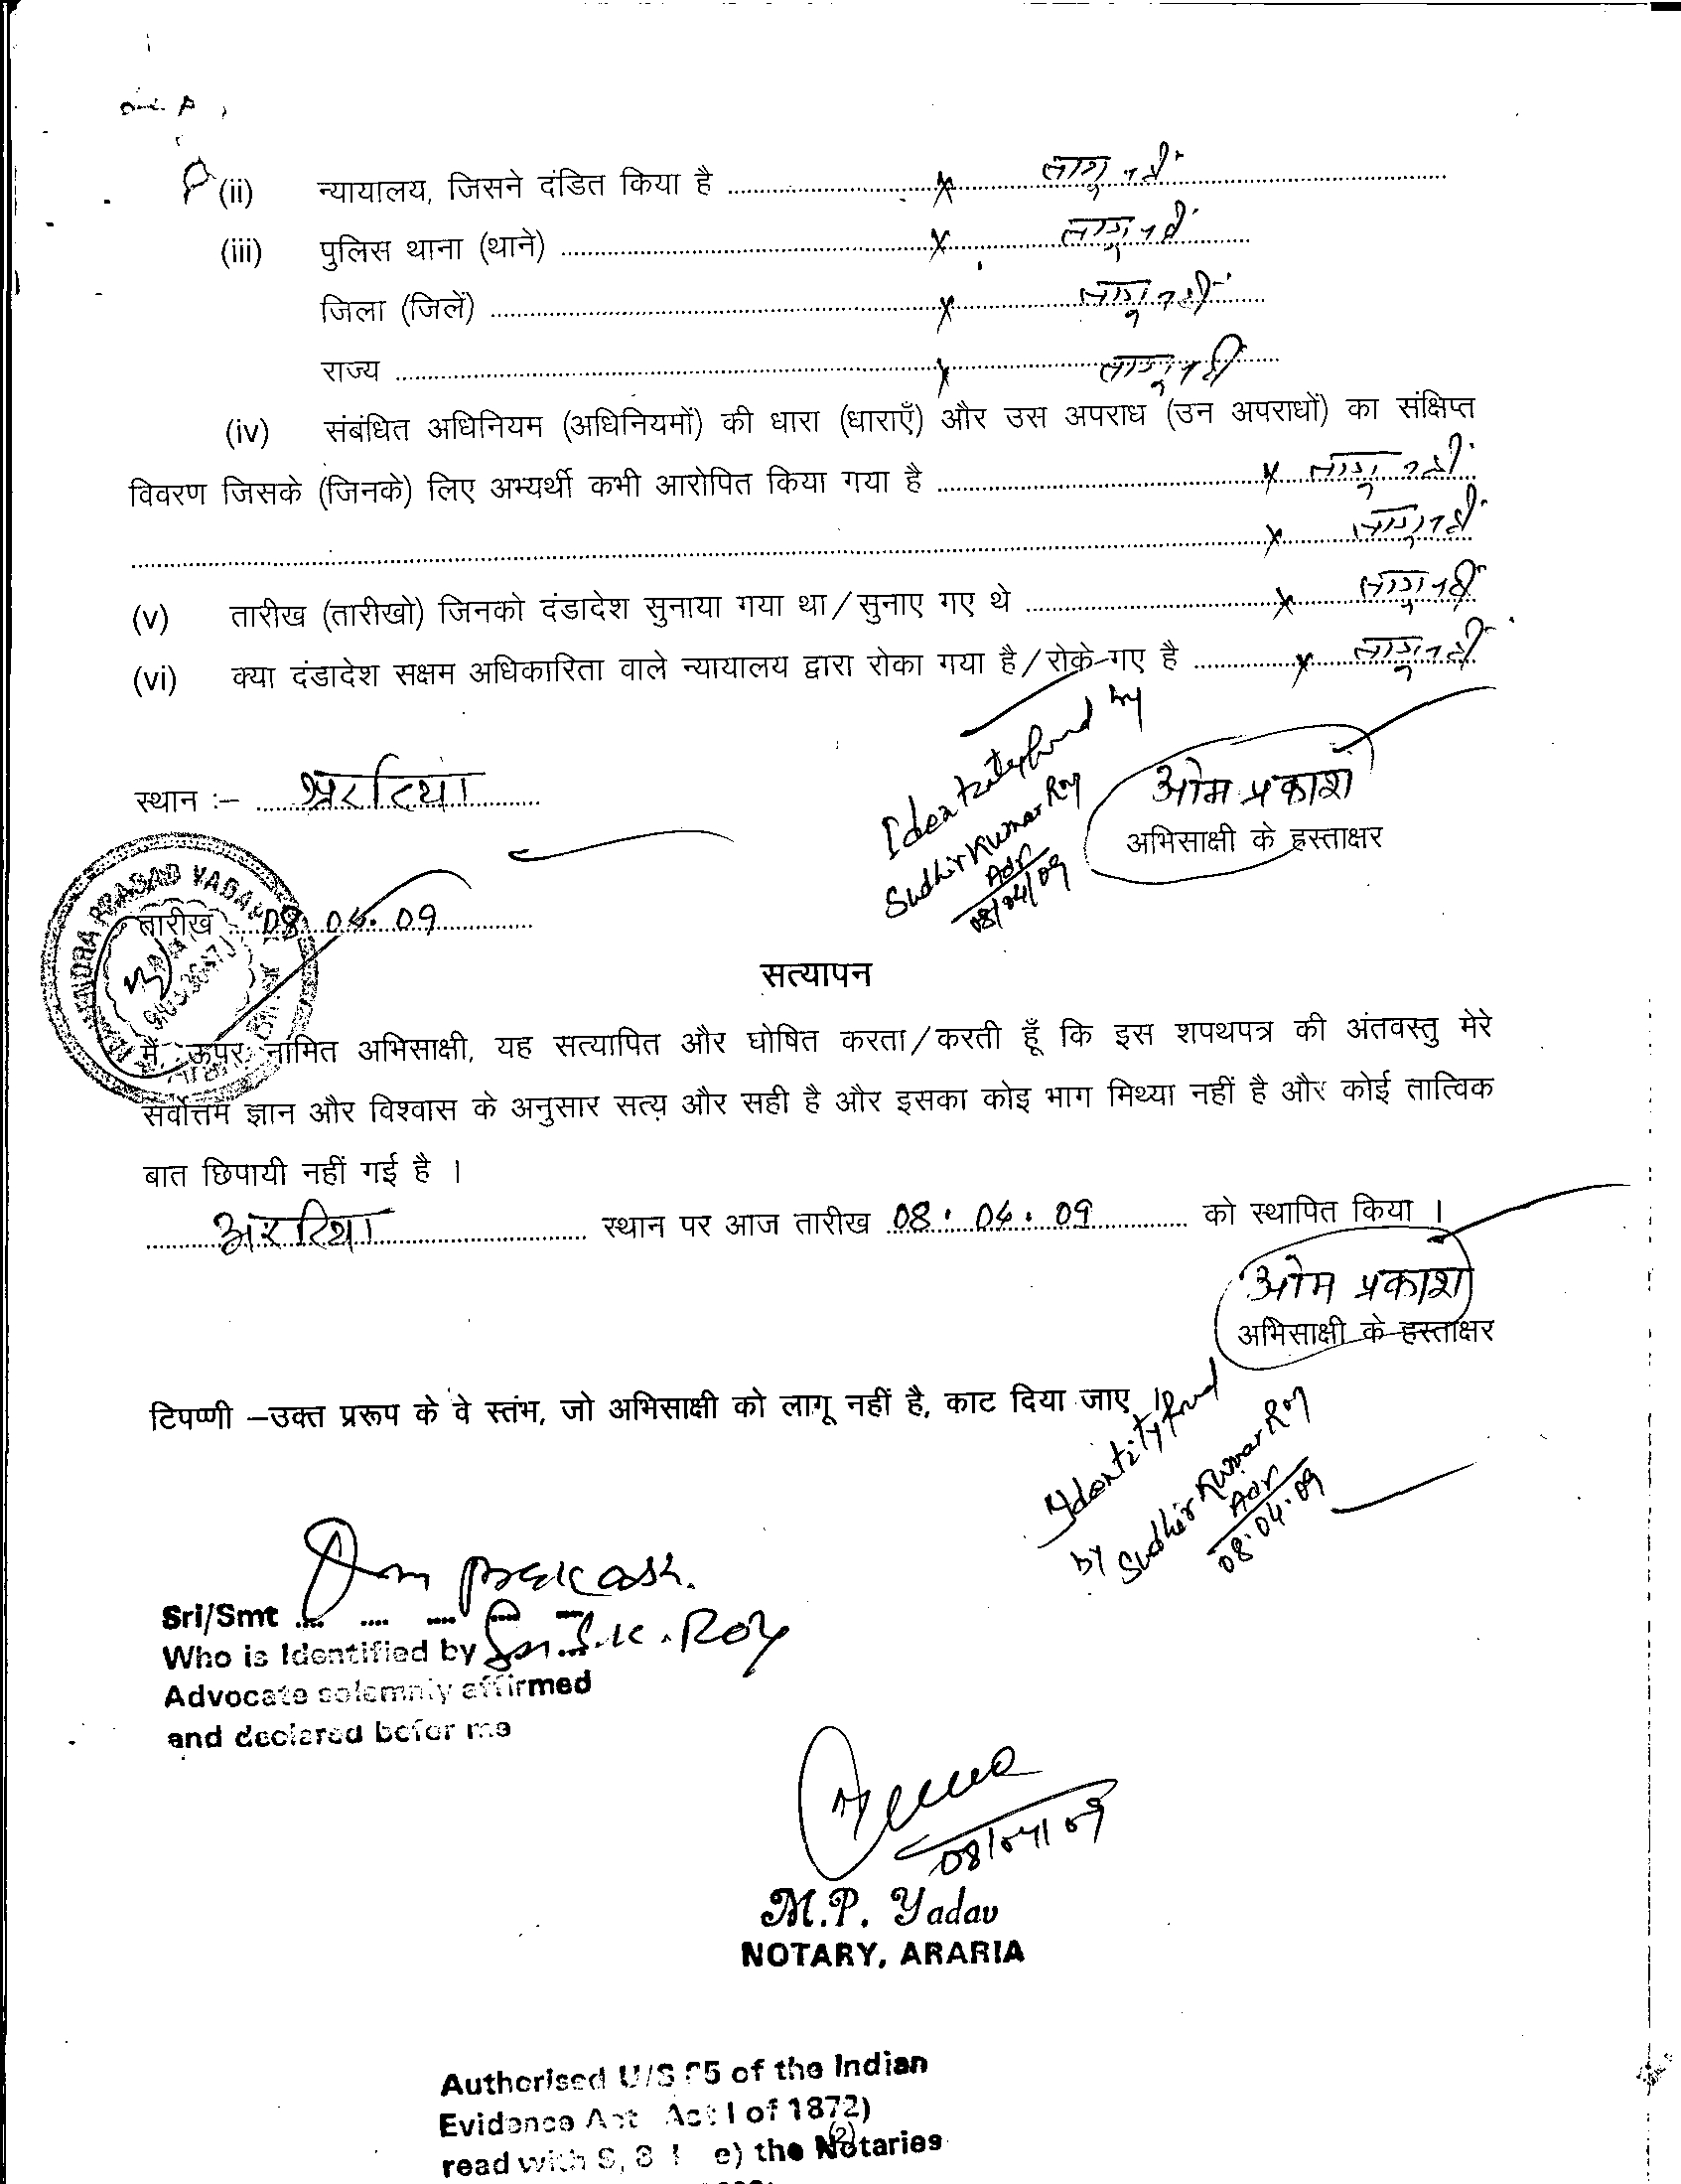 (ii) न्यायालय, जिसने दंडित किया है ........ x लागू नहीं
(iii) पुलिस थाना (थाने) ........ x लागू नहीं
जिला (जिलें) ........ x लागू नहीं
राज्य ........ x लागू नहीं
(iv) संबंधित अधिनियम (अधिनियमों) की धारा (धाराएँ) और उस अपराध (उन अपराधों) का संक्षिप्त
विवरण जिसके (जिनके) लिए अभ्यर्थी कभी आरोपित किया गया है ........ x लागू नहीं
........ x लागू नहीं
(v) तारीख (तारीखो) जिनको दंडादेश सुनाया गया था/सुनाए गए थे ........ x लागू नहीं
(vi) क्या दंडादेश सक्षम अधिकारिता वाले न्यायालय द्वारा रोका गया है/रोके गए है ........ x लागू नहीं
by
Sudhir Kumar Roy
Adv
08/04/09
ओम प्रकाश
अभिसाक्षी के हस्ताक्षर
स्थान :– अररिया
तारीख 08.04.09
PRASAD YADAV
सत्यापन
मैं, ऊपर नामित अभिसाक्षी, यह सत्यापित और घोषित करता/करती हूँ कि इस शपथपत्र की अंतवस्तु मेरे
सर्वोत्तम ज्ञान और विश्वास के अनुसार सत्य और सही है और इसका कोइ भाग मिथ्या नहीं है और कोई तात्विक
बात छिपायी नहीं गई है ।
अररिया स्थान पर आज तारीख 08.04.09 को स्थापित किया ।
ओम प्रकाश
अभिसाक्षी के हस्ताक्षर
टिपण्णी –उक्त प्ररूप के वे स्तंभ, जो अभिसाक्षी को लागू नहीं है, काट दिया जाए
by Sudhir Kumar Roy
Adv
08.04.09
Sri/Smt .... Om prakash.
Who is Identified by Sri S.K. Roy
Advocate solemnly affirmed
and declared befor me
08/04/09
M.P. Yadav
NOTARY, ARARIA
Authorised U/S of the Indian
Evidence Act Act I of 1872)
(2)
read with S, 8 e) the Notaries